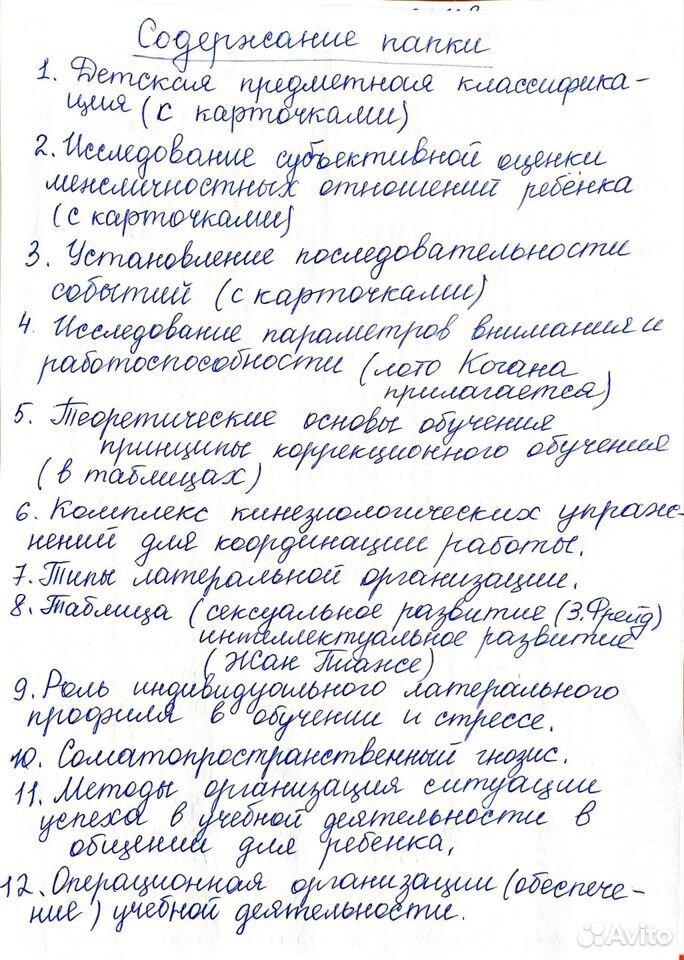 Содержание папки
1. Детская предметная классифика-
ция (с карточками)
2. Исследование субъективной оценки
межличностных отношений ребёнка
(с карточками)
3. Установление последовательности
событий (с карточками)
4. Исследование параметров внимания и
работоспособности (лото Когана
прилагается)
5. Теоретические основы обучения
принципы коррекционного обучения
(в таблицах)
6. Комплекс кинезиологических упраж-
нений для координации работы.
7. Типы латеральной организации.
8. Таблица (сексуальное развитие (З. Фрейд)
интеллектуальное развитие
(Жан Пиажсе)
9. Роль индивидуального латерального
профиля в обучении и стрессе.
10. Соматопространственный гнозис.
11. Методы организация ситуации
успеха в учебной деятельности в
общении для ребенка.
12. Операционная организации (обеспече-
ние) учебной деятельности.
Avito